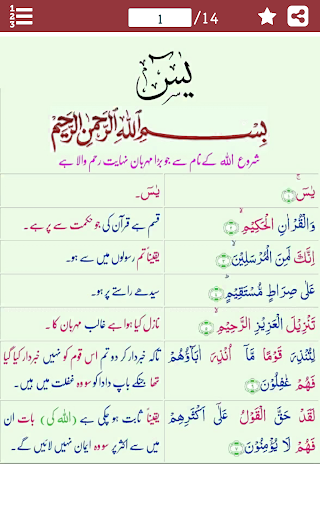 1
2
3
1 /14
يٰسٓ
بِسْمِ اللهِ الرَّحْمٰنِ الرَّحِيْمِ
شروع اللہ کےنام سے جو بڑا مہربان نہایت رحم والا ہے
يٰسٓ ۚ ﴿۱﴾
یٰسٓ۔
وَالْقُرْاٰنِ الْحَكِيْمِ ۙ ﴿۲﴾
قسم ہے قرآن کی جو حکمت سے پر ہے۔
اِنَّكَ لَمِنَ الْمُرْسَلِيْنَ ۙ ﴿۳﴾
یقیناً تم رسولوں میں سے ہو۔
عَلٰى صِرَاطٍ مُّسْتَقِيْمٍ ؕ ﴿۴﴾
سیدھے راستے پر ہو۔
تَنْزِيْلَ الْعَزِيْزِ الرَّحِيْمِ ۙ ﴿۵﴾
نازل کیا ہوا ہے غالب مہربان کا۔
لِتُنْذِرَ قَوْمًا مَّاۤ اُنْذِرَ اٰبَآؤُهُمْ
فَهُمْ غٰفِلُوْنَ ﴿۶﴾
تاکہ خبردار کر دو تم اس قوم کو نہیں خبردار کیا گیا
تھا جنکے باپ دادا کو سو وہ غفلت میں ہیں۔
لَقَدْ حَقَّ الْقَوْلُ عَلٰٓى اَكْثَرِهِمْ
فَهُمْ لَا يُؤْمِنُوْنَ ﴿۷﴾
یقیناً ثابت ہو چکی ہے (اللہ کی) بات ان
میں سے اکثر پر سو وہ ایمان نہیں لائیں گے۔